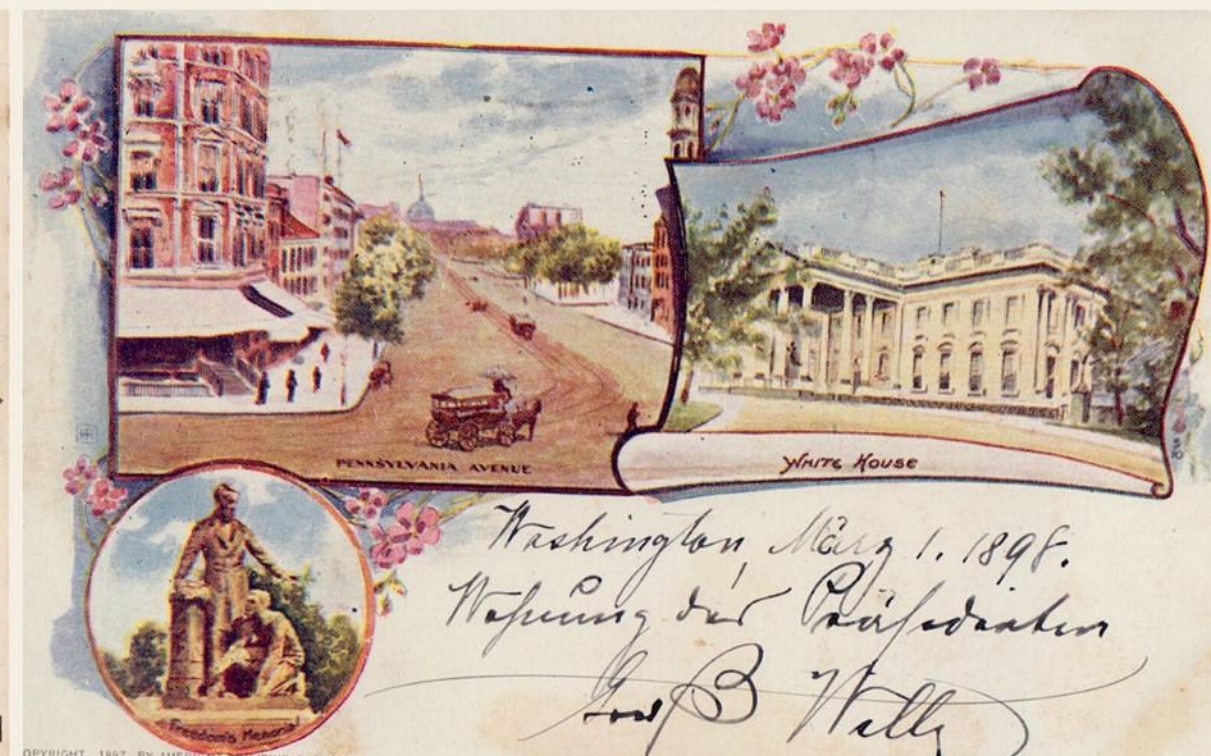 PENNSYLVANIA AVENUE
WHITE HOUSE
Freedom's Memorial
Washington, März 1. 1898.
Wohnung des Präsidenten
B
COPYRIGHT 1897 BY